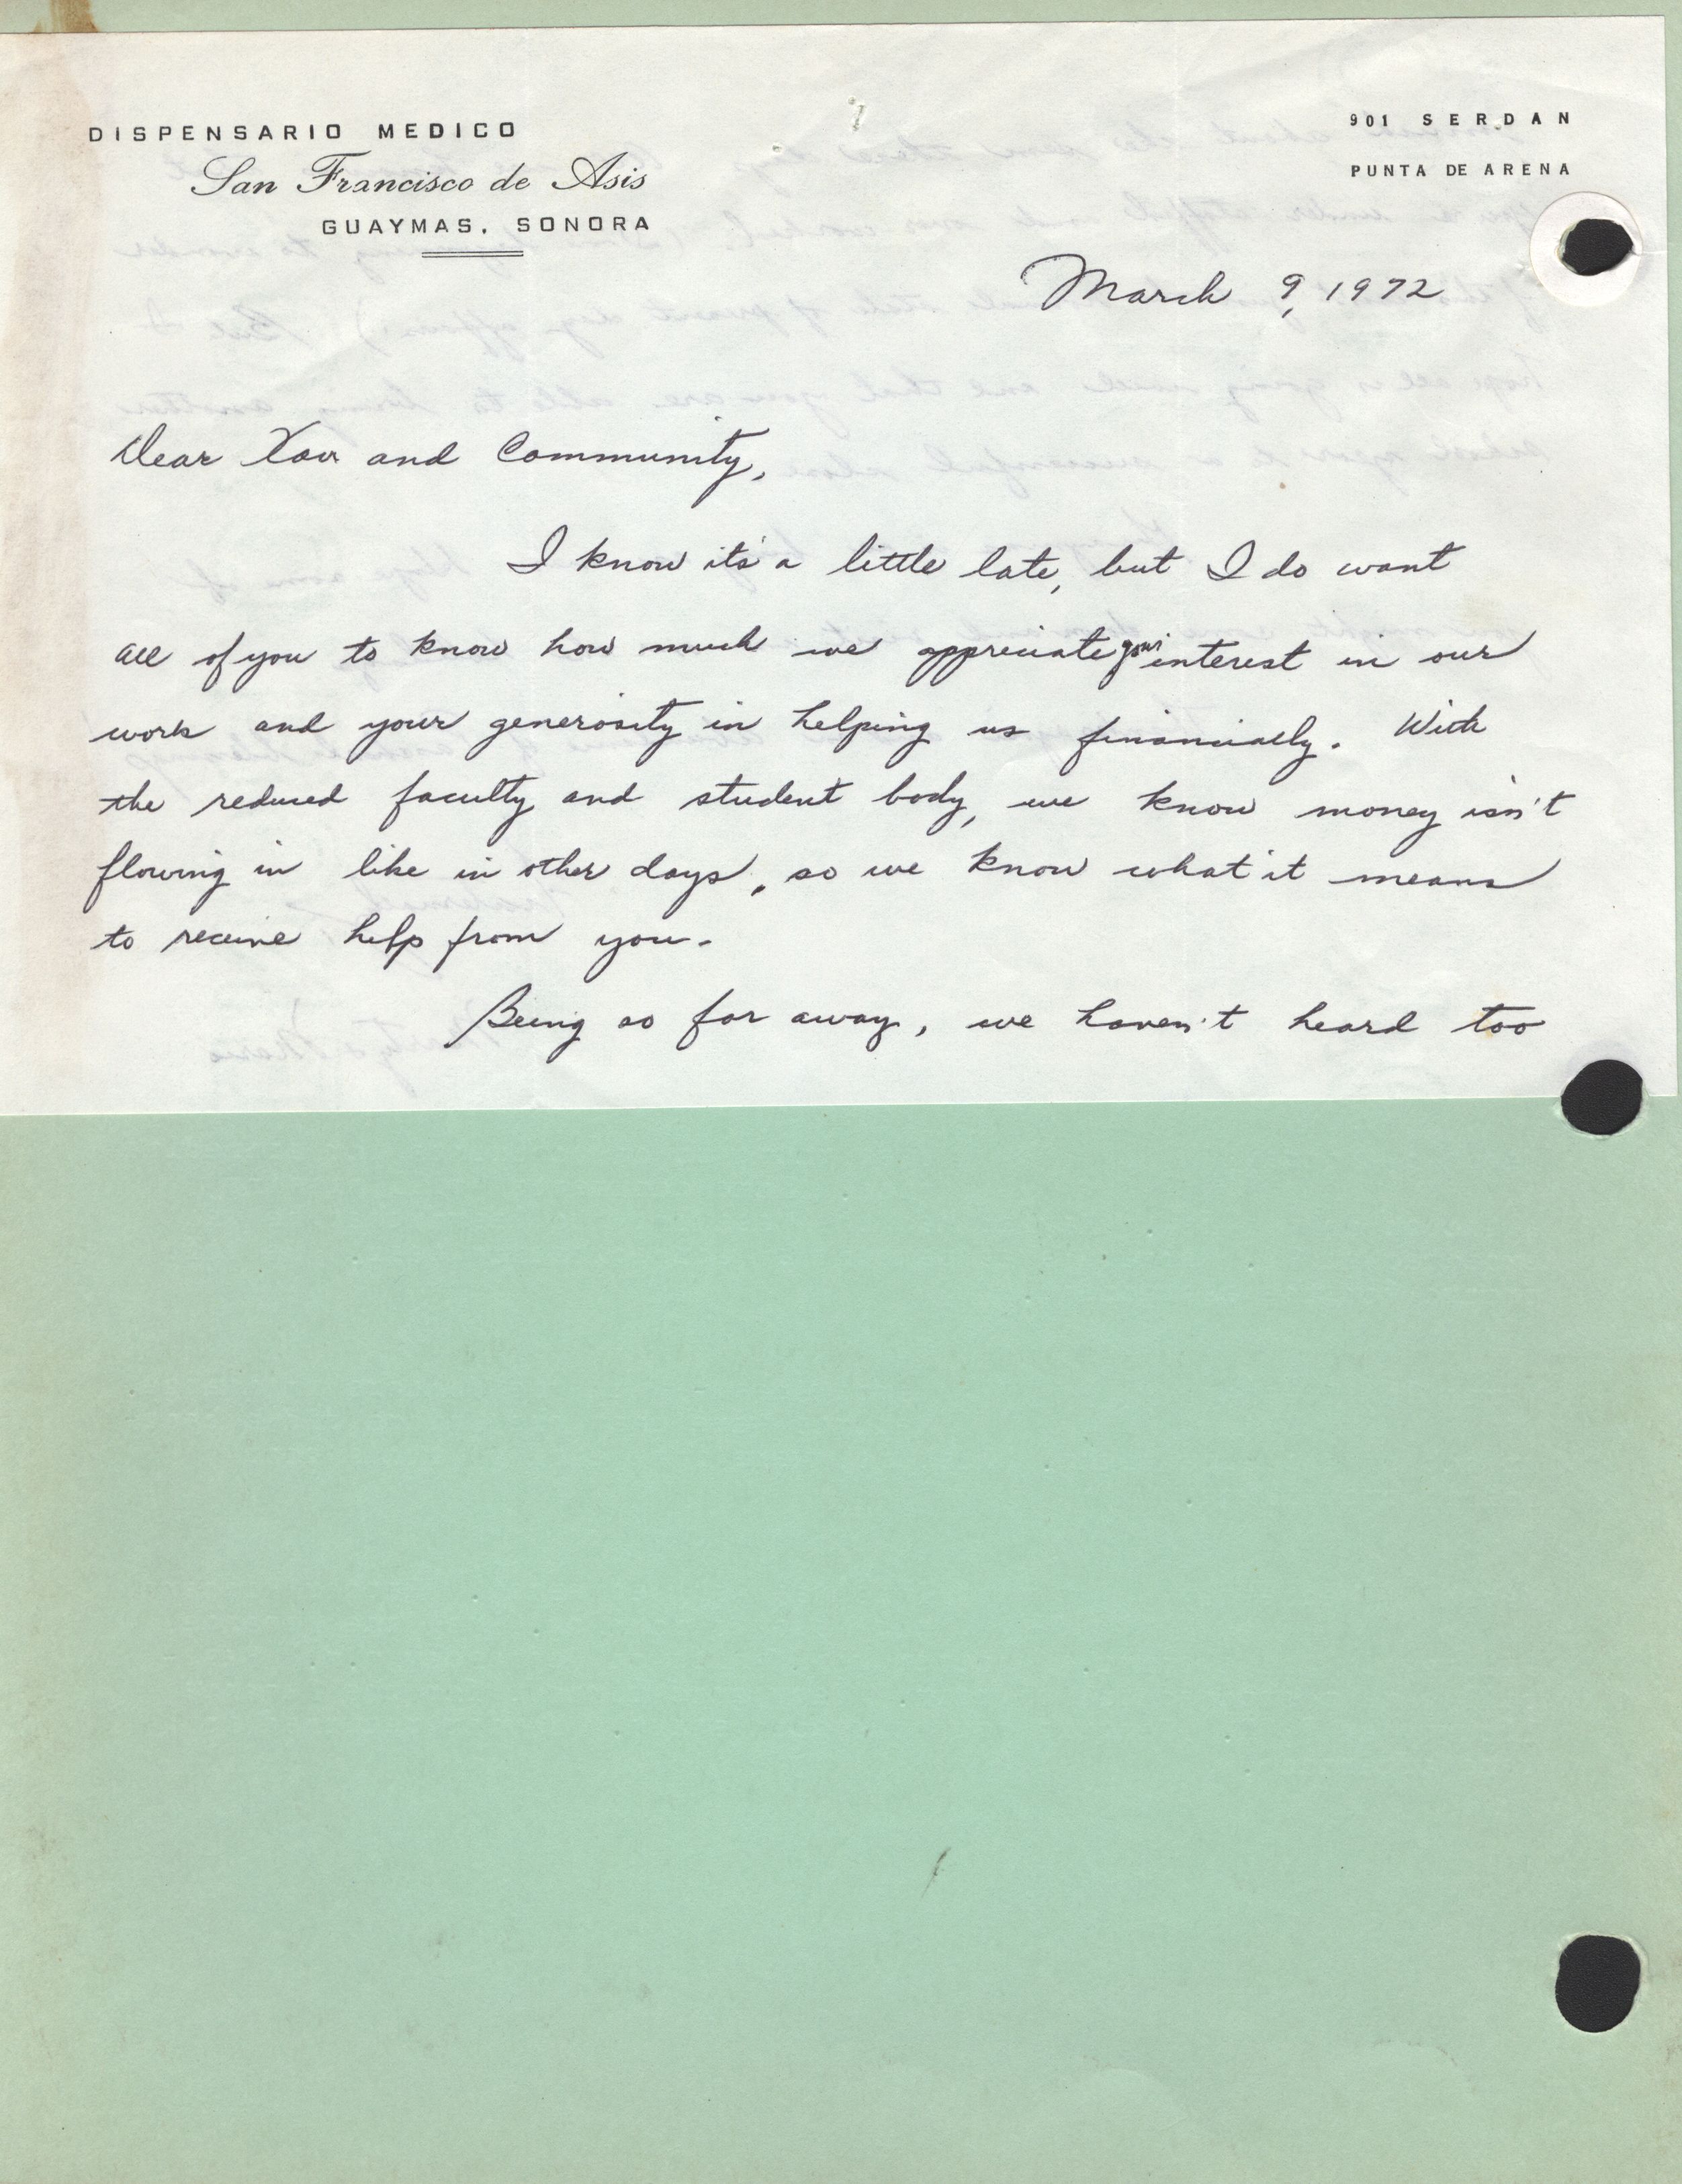 DISPENSARIO MEDICO
San Francisco de Asis
GUAYMAS, SONORA
901 SERDAN
PUNTA DE ARENA
March 9, 1972
Dear Xav and Community,
I know it's a little late, but I do want
all of you to know how much we appreciate your interest in our
work and your generosity in helping us financially. With
the reduced faculty and student body, we know money isn't
flowing in like in other days, so we know what it means
to receive help from you.
Being so far away, we haven't heard too